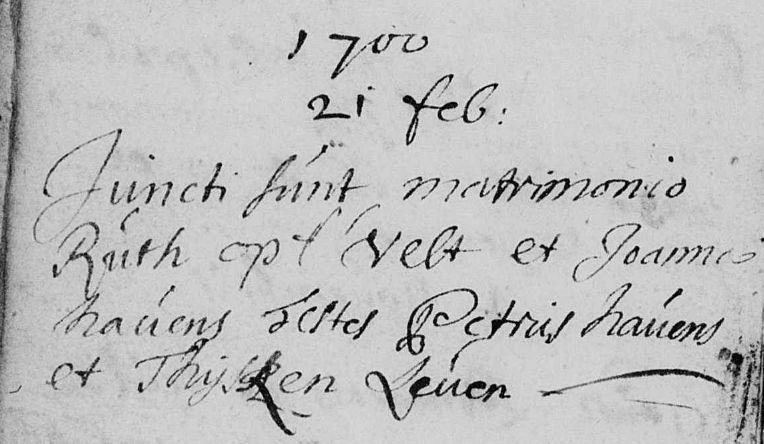 1700
21 feb:
Juncti sunt matrimonio
Ruth op't Velt et Joanna
havens testes Petrus havens
et Thijsken Leuen